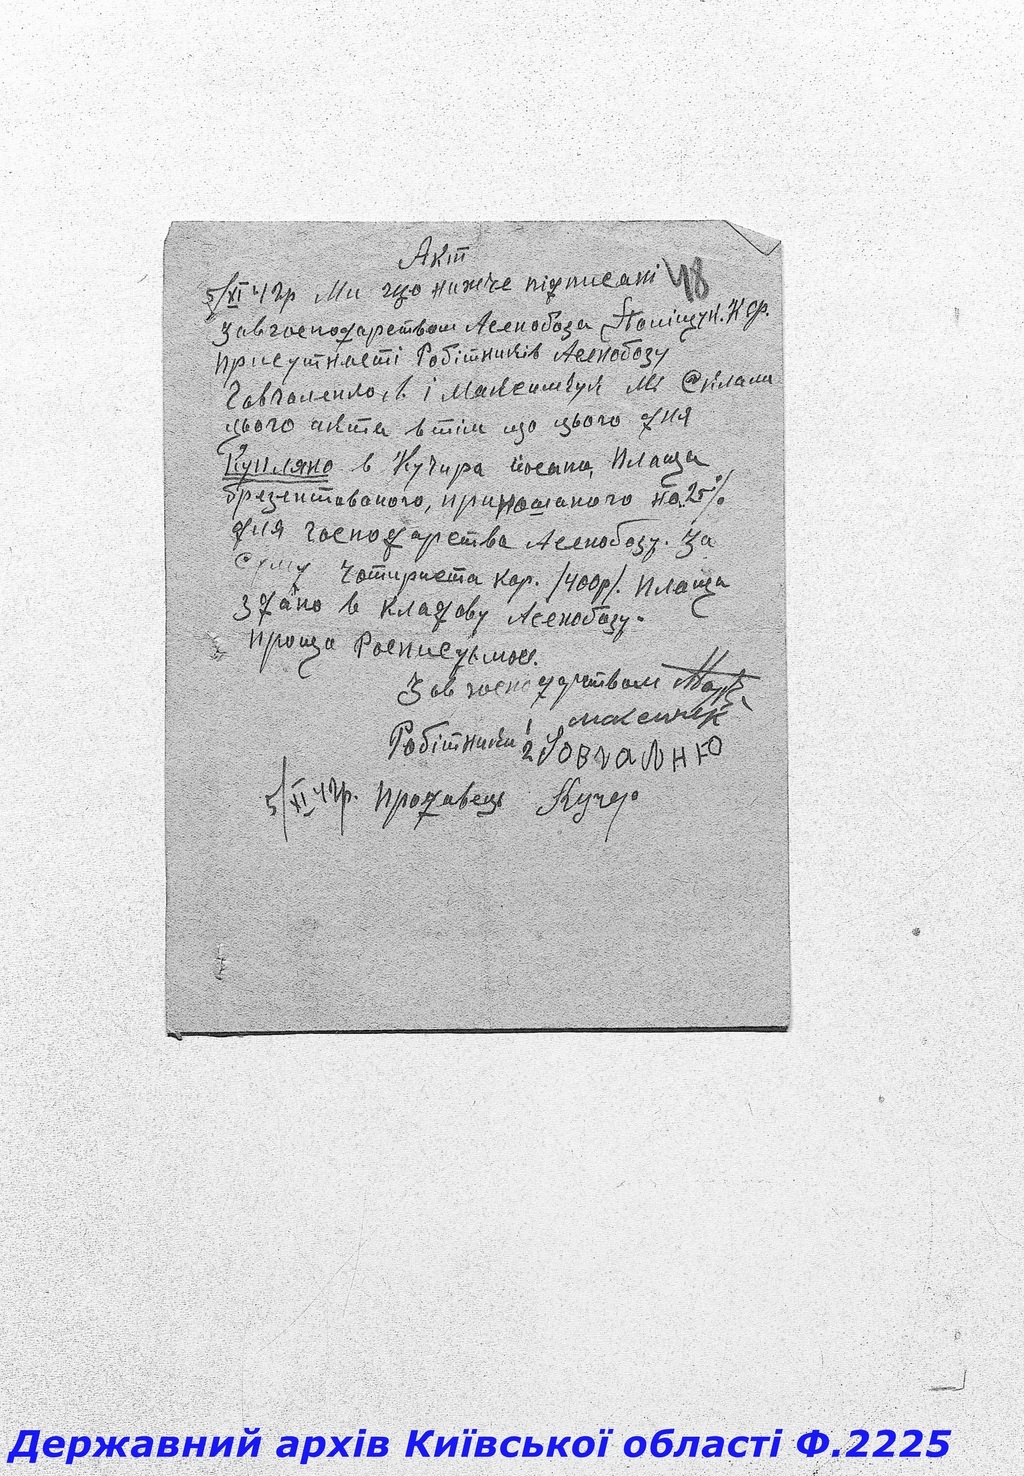 Акт
5/XI 42р Ми що нижче підписані 48
Завгосподарством Асенобоза Поліщук.
присутності Робітників Асенобозу
Говчаленко, в і Максимчук ми склали
цього акта втім що цього дня
Купляно в Кучира йосипа, Плаща
брезентованого, приношаного на 25%
для господарства Асенобозу. За
Суму чотириста кар. /400р/. Плаща
здано в кладову Асенобозу.
Проща Росписуъмос.
Зав господарством
Робітники 1 максимчук
2 Говчалню
5/XI 42р. Продавець Кучер
Державний архів Київської області Ф.2225